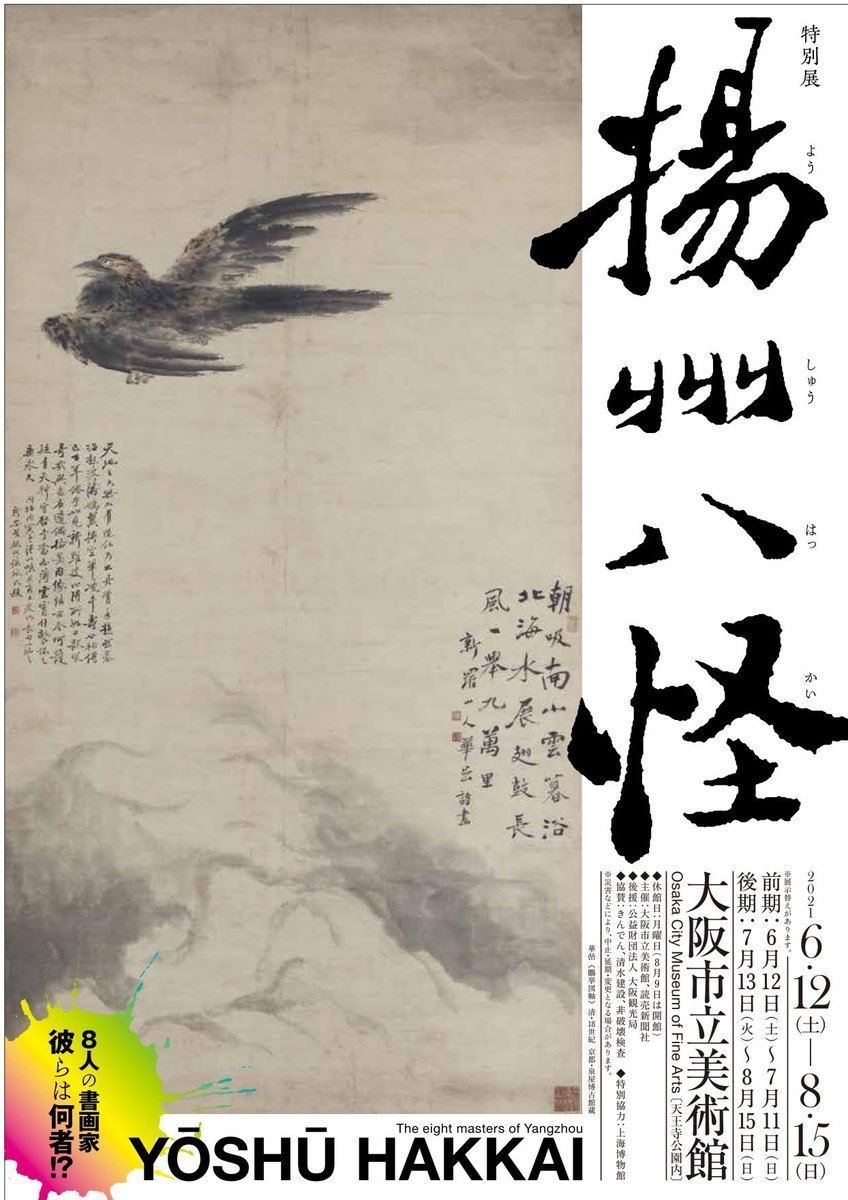 特別展
揚州八怪
よう
しゅう
はっ
かい
2021
6・12(土)―8・15(日)
※展示替えがあります。
前期:6月12日(土)〜7月11日(日)
後期:7月13日(火)〜8月15日(日)
大阪市立美術館
Osaka City Museum of Fine Arts[天王寺公園内]
◆休館日:月曜日(8月9日は開館)
◆主催:大阪市立美術館、読売新聞社
◆後援:公益財団法人 大阪観光局
◆協賛:きんでん、清水建設、非破壊検査 ◆特別協力:上海博物館
※災害などにより、中止・延期・変更となる場合があります。
華嵒《鵬挙図軸》 清・18世紀 京都・泉屋博古館蔵
朝吸南山雲暮浴
北海水展翅鼓長
風一舉九萬里
新羅山人華嵒詩畫
8人の書画家
彼らは何者!?
The eight masters of Yangzhou
YŌSHŪ HAKKAI